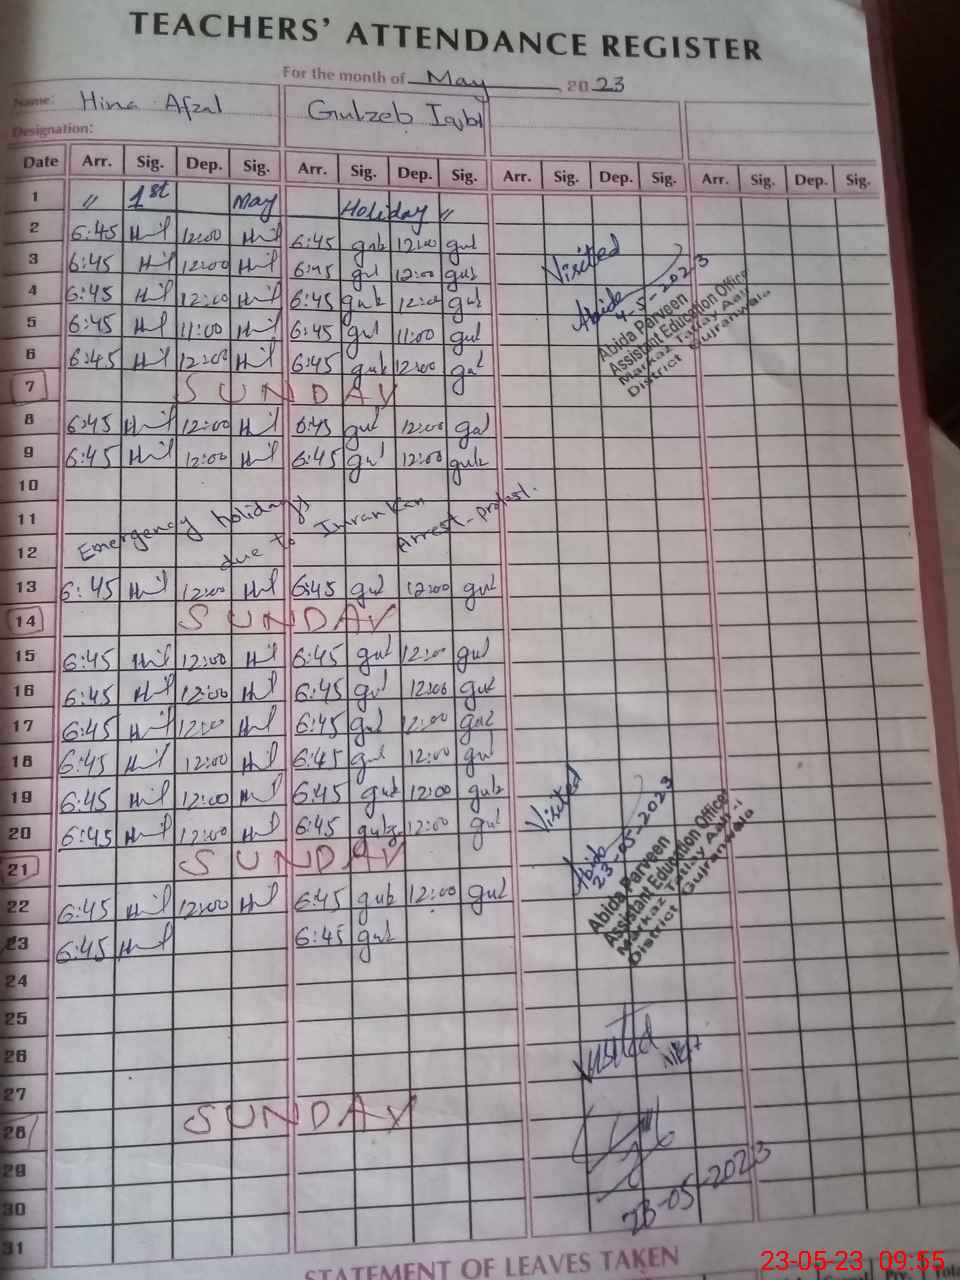 TEACHERS' ATTENDANCE REGISTER
For the month of May, 2023
Name: Hina Afzal Gulzeb Iqbl
Designation:
Date Arr. Sig. Dep. Sig. Arr. Sig. Dep. Sig. Arr. Sig. Dep. Sig. Arr. Sig. Dep. Sig.
1 " 1st May Holiday "
2 6:45 12:00 6:45 gul 12:00 gul
3 6:45 12:00 6:45 gul 12:00 gul
4 6:45 12:00 6:45 gul 12:00 gul
5 6:45 11:00 6:45 gul 11:00 gul
6 6:45 12:00 6:45 gul 12:00 gul
7 SUNDAY
8 6:45 12:00 6:45 gul 12:00 gul
9 6:45 12:00 6:45 gul 12:00 gul
10
11
12
Emergency holidays due to Imran Kan Arrest-protest.
13 6:45 12:00 6:45 gul 12:00 gul
14 SUNDAY
15 6:45 12:00 6:45 gul 12:00 gul
16 6:45 12:00 6:45 gul 12:00 gul
17 6:45 12:00 6:45 gul 12:00 gul
18 6:45 12:00 6:45 gul 12:00 gul
19 6:45 12:00 6:45 gul 12:00 gul
20 6:45 12:00 6:45 gulz 12:00 gul
21 SUNDAY
22 6:45 12:00 6:45 gul 12:00 gul
23 6:45 6:45 gul
24
25
26
27
28 SUNDAY
29
30
31
Visited
Abida
4-5-2023
Abida Parveen
Assistant Education Officer
Markaz Tatlay Aali-I
District Gujranwala
Visited
Abida
23-05-2023
Abida Parveen
Assistant Education Officer
Markaz Tatlay Aali-I
District Gujranwala
Visited
23-05-2023
STATEMENT OF LEAVES TAKEN
23-05-23 09:55